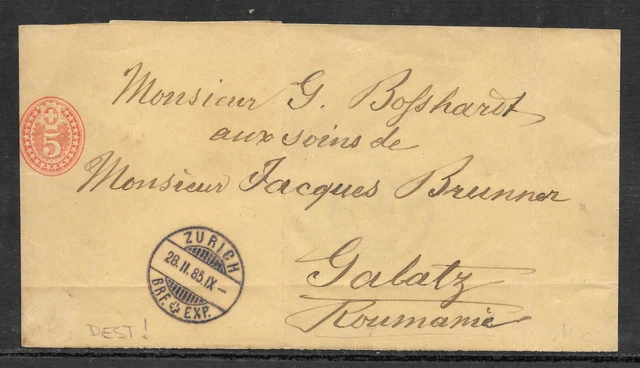 Monsieur G. Bosshardt
aux soins de
Monsieur Jacques Brunner
Galatz
Roumanie
5
ZURICH
28.II.85.IX-
BRF. EXP.
DEST!